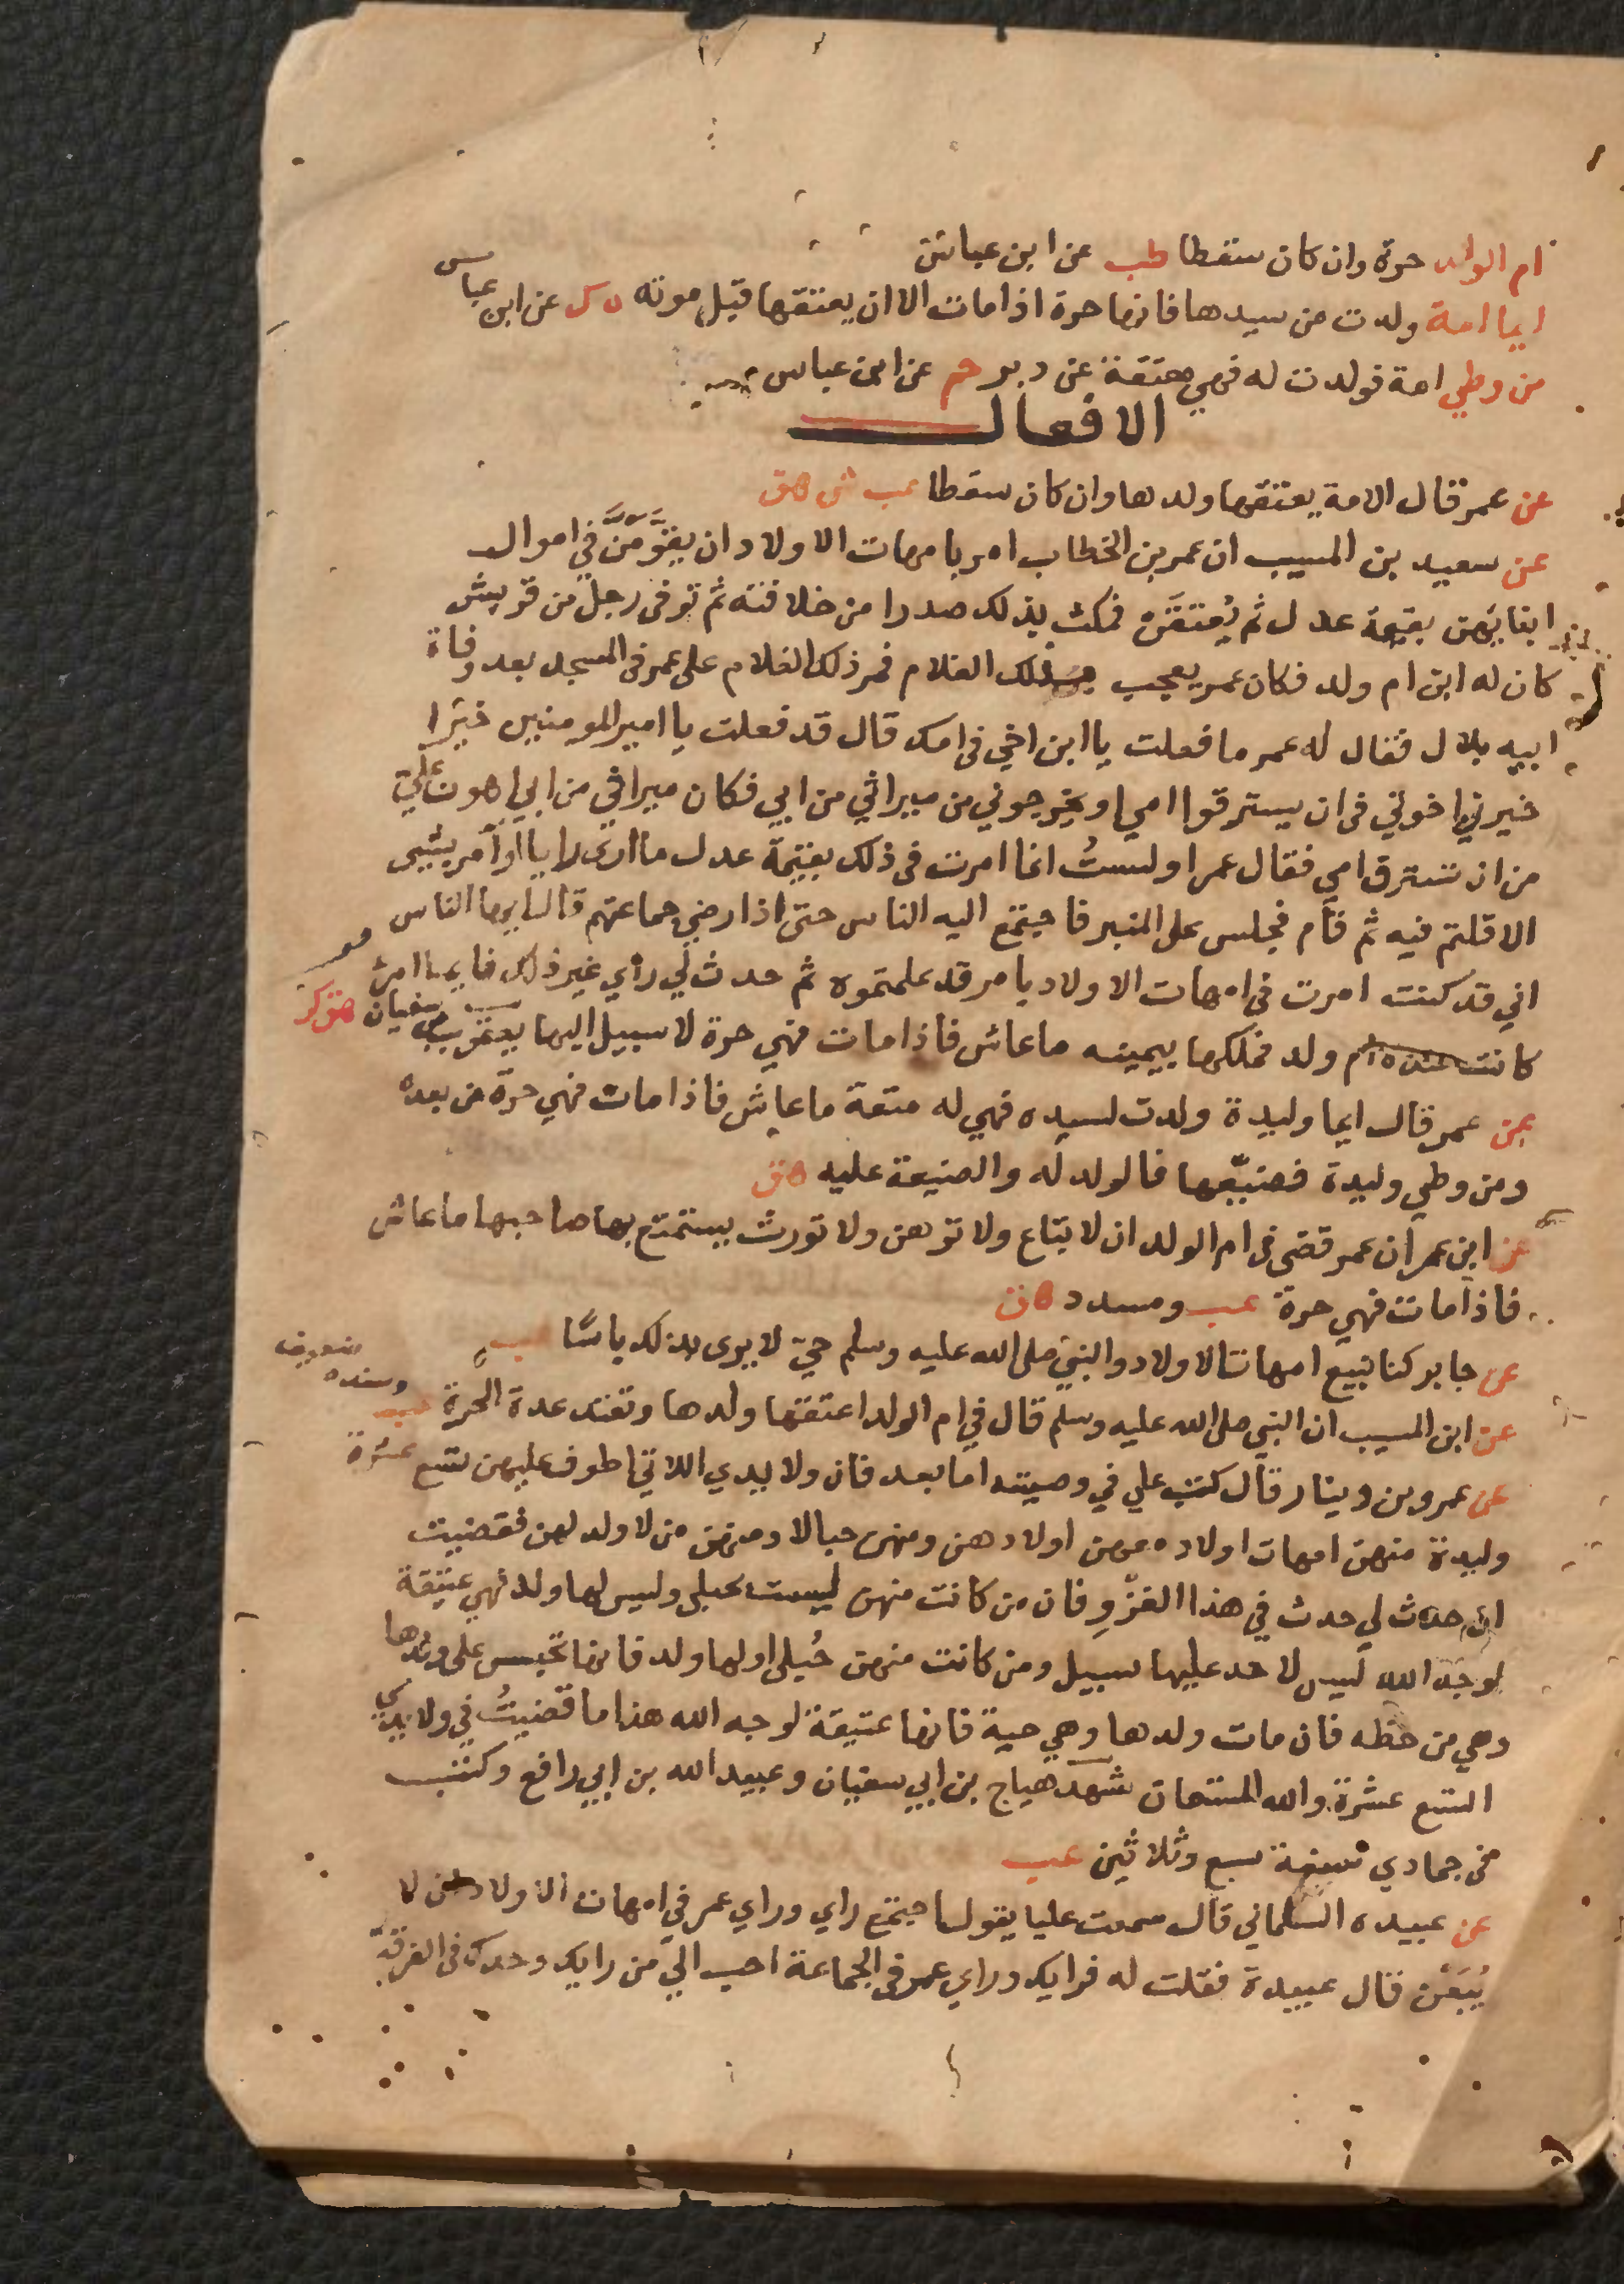 ام الولد حرة وان كان سقطا طب عن ابن عباس
ايما امة ولدت من سيدها فانها حرة اذا مات الا ان يعتقها قبل موته ه ك عن ابن عباس
من وطي امة فولدت له فهي معتقة عن دبر حم عن ابن عباس
الافعال
عن عمر قال الامة يعتقها ولدها وان كان سقطا عب ش هق
عن سعيد بن المسيب ان عمر بن الخطاب امر بامهات الاولاد ان يقوَّمنَّ في اموال
ابنايهن بقيمة عدل ثم يُعتقَن فمكث بذلك صدرا من خلافته ثم توفى رجل من قريش
كان له ابن ام ولد فكان عمر يعجب بذلك الغلام فمر ذلك الغلام على عمر فى المسجد بعد وفاة
ابيه بلال فقال له عمر ما فعلت يا ابن اخي فى امك قال قد فعلت يا امير المومنين خيرا
خيرني اخوتي فى ان يسترقوا امي او يخرجوني من ميراثي من ابي فكان ميراثي من ابي اهون علي
من ان تسترق امي فقال عمر اولستُ انما امرت فى ذلك بقيمة عدل ما ارى رايا او آمر بشيى
الا قلتم فيه ثم قام فجلس على المنبر فاجتمع اليه الناس حتى اذا رضي جماعتهم قال ايها الناس
اني قد كنت امرت فى امهات الاولاد بامر قد علمتموه ثم حدث لي رأي غير ذلك فايما امرء
كانت عنده ام ولد فملكها بيمينه ما عاش فاذا مات فهي حرة لا سبيل اليها يعقوب بن سفيان هق كر
عن عمر قال ايما وليدة ولدت لسيده فهي له متعة ما عاش فاذا مات فهي حرة من بعده
ومن وطي وليدة فضيّعها فالولد له والضيعة عليه هق
عن ابن عمر ان عمر قضى فى ام الولد ان لا تباع ولا توهن ولا تورث يستمتع بها صاحبها ما عاش
فاذا مات فهي حرة عب ومسدد هق
عن جابر كنا نبيع امهات الاولاد والنبي صلى الله عليه وسلم حيّ لا يرى بذلك باسًا عب
عن ابن المسيب ان النبي صلى الله عليه وسلم قال في ام الولد اعتقها ولدها وتعتد عدة الحرة عب وسنده ضعيف
عن عمرو بن دينار قال كتب علي في وصيته اما بعد فان ولايدي اللاتي اطوف عليهن تسع عشرة
وليدة منهن امهات اولاد معهن اولادهن ومنهن حبالا ومنهن من لا ولد لهن فقضيت
ان حدث لي حدث في هذا الغزوِ فان من كانت منهن ليست بحبلى وليس لها ولد فهي عتيقة
لوجه الله ليس لاحد عليها سبيل ومن كانت منهن حُبلى او لها ولد فانها تحبس على ولدها
وهي من حظه فان مات ولدها وهي حية فانها عتيقة لوجه الله هذا ما قضيتُ في ولايدي
التسع عشرة والله المستعان شهد هياج بن ابي سفيان وعبيد الله بن ابي رافع وكتب
في جمادي سنة سبع وثلاثين عب
عن عبيده السلماني قال سمعت عليا يقول اجتمع راي وراي عمر في امهات الاولاد ان لا
يُبَعْن قال عبيدة فقلت له فرايك وراي عمر فى الجماعة احب اليّ من رايك وحدك فى الفرقة